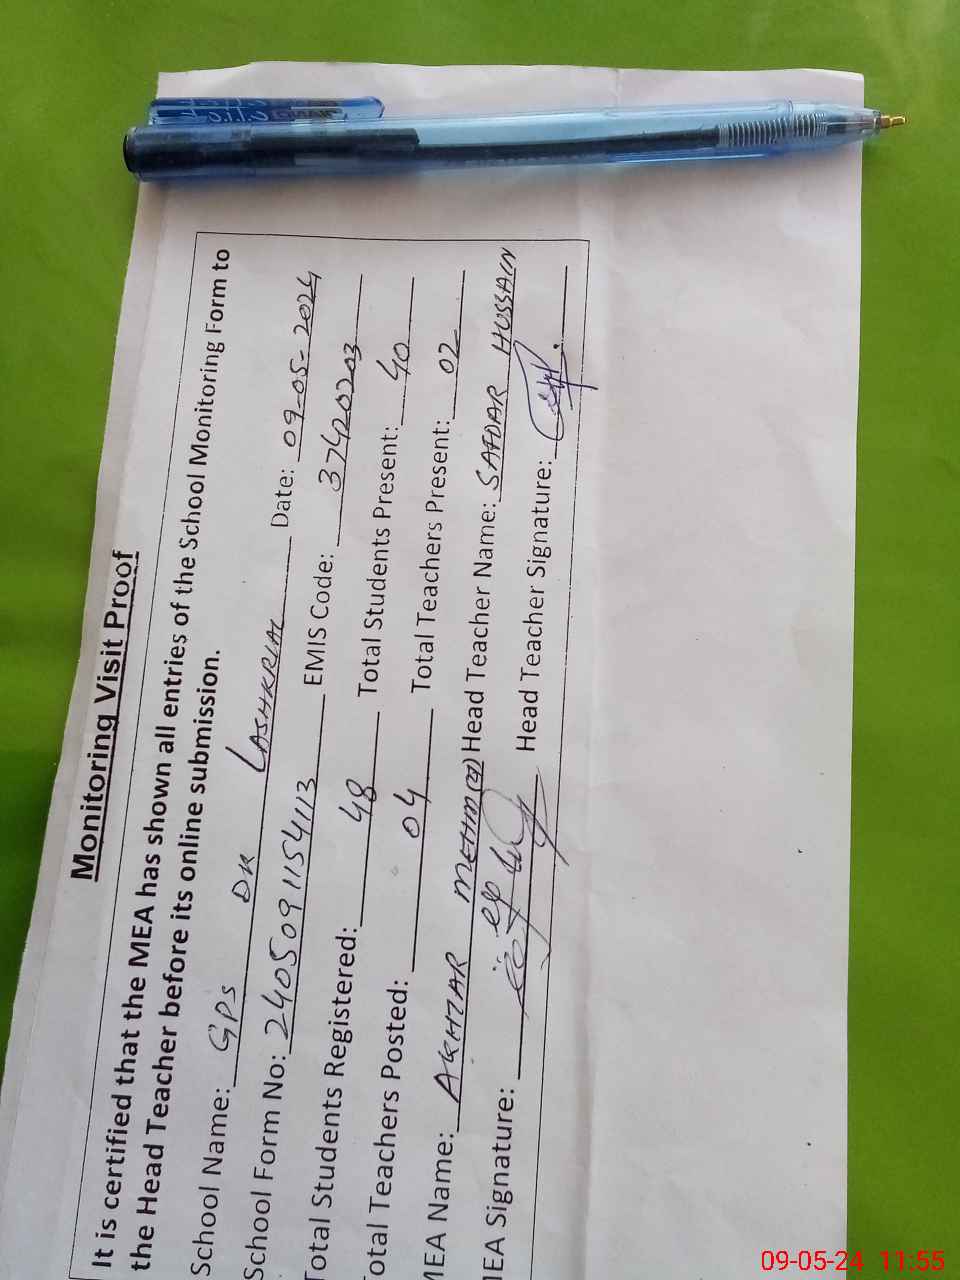 Monitoring Visit Proof
It is certified that the MEA has shown all entries of the School Monitoring Form to
the Head Teacher before its online submission.
School Name: GPS DK LASHKRIAL Date: 09-05-2024
School Form No: 2405091154113 EMIS Code: 37420203
Total Students Registered: 48 Total Students Present: 40
Total Teachers Posted: 04 Total Teachers Present: 02
MEA Name: AKHTAR Head Teacher Name: SAFDAR HUSSAIN
MEA Signature: Head Teacher Signature:
09-05-24 11:55